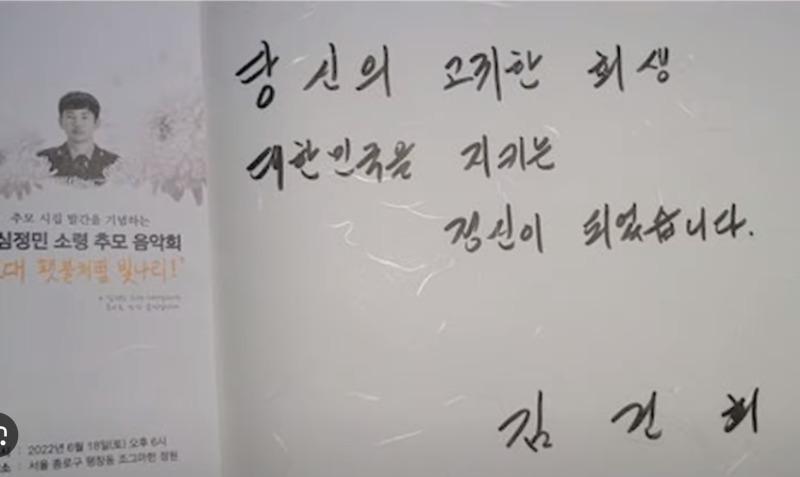 추모 시집 발간을 기념하는
심정민 소령 추모 음악회
대 횃불처럼 빛나리!'
: 2022년 6월 18일(토) 오후 6시
: 서울 종로구 평창동 조그마한 정원
당신의 고귀한 희생
대한민국을 지키는
정신이 되었습니다.
김건희